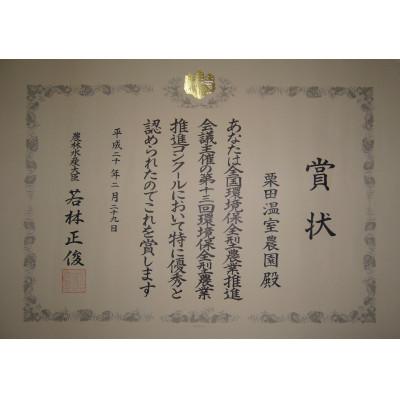 賞状
栗田温室農園殿
あなたは全国環境保全型農業推進
会議主催の第十三回環境保全型農業
推進コンクールにおいて特に優秀と
認められたのでこれを賞します
平成二十年二月二十九日
農林水産大臣 若林正俊